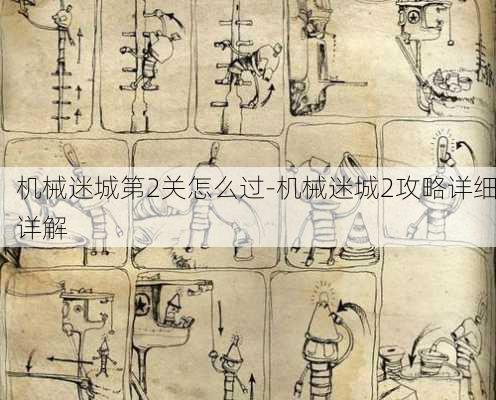 机械迷城第2关怎么过-机械迷城2攻略详细
详解